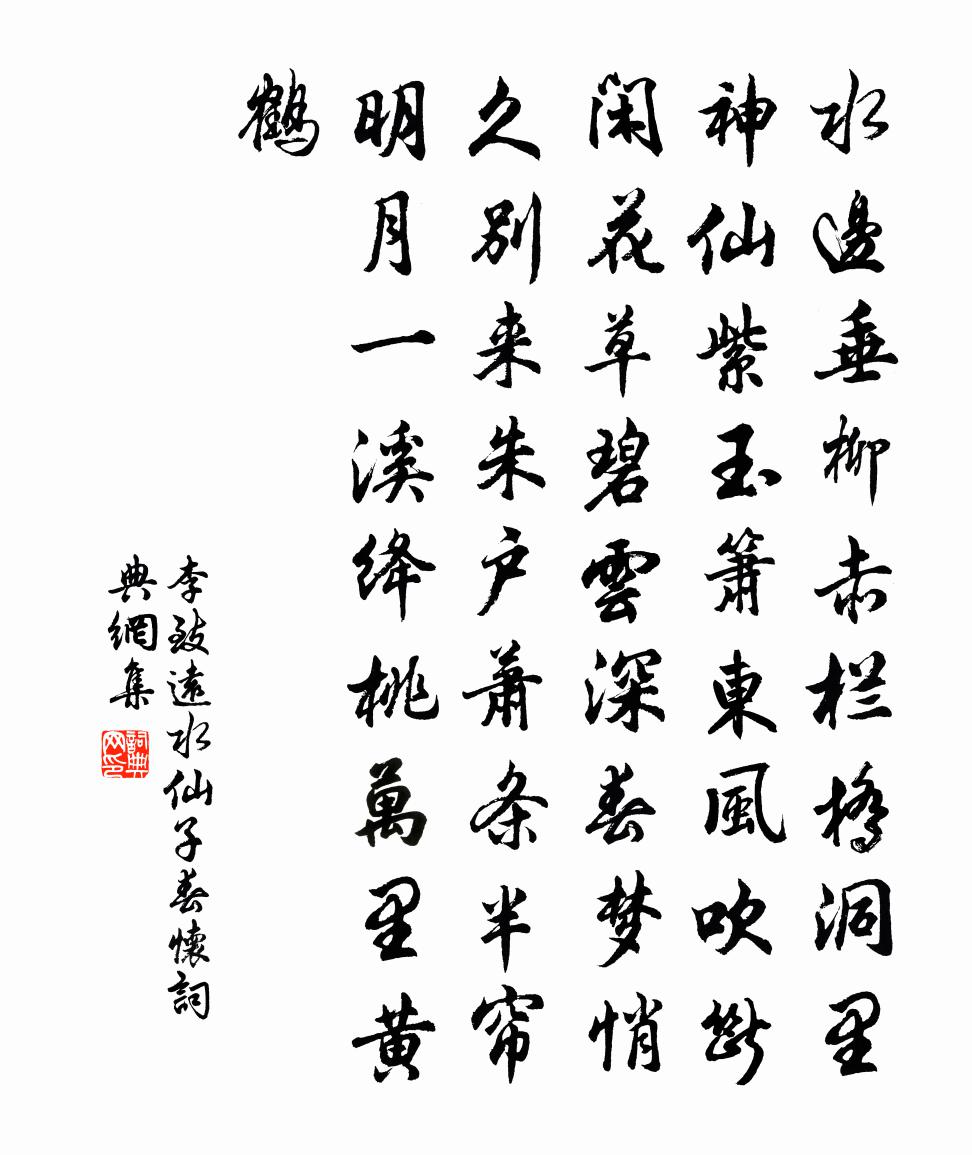 水邊垂柳赤栏橋洞里
神仙紫玉箫東風吹斷
闲花草碧雲深春梦悄
久别来朱户萧条半帘
明月一溪绛桃萬里黄
鶴
李致遠水仙子春懷詞
典網集
詞典网印